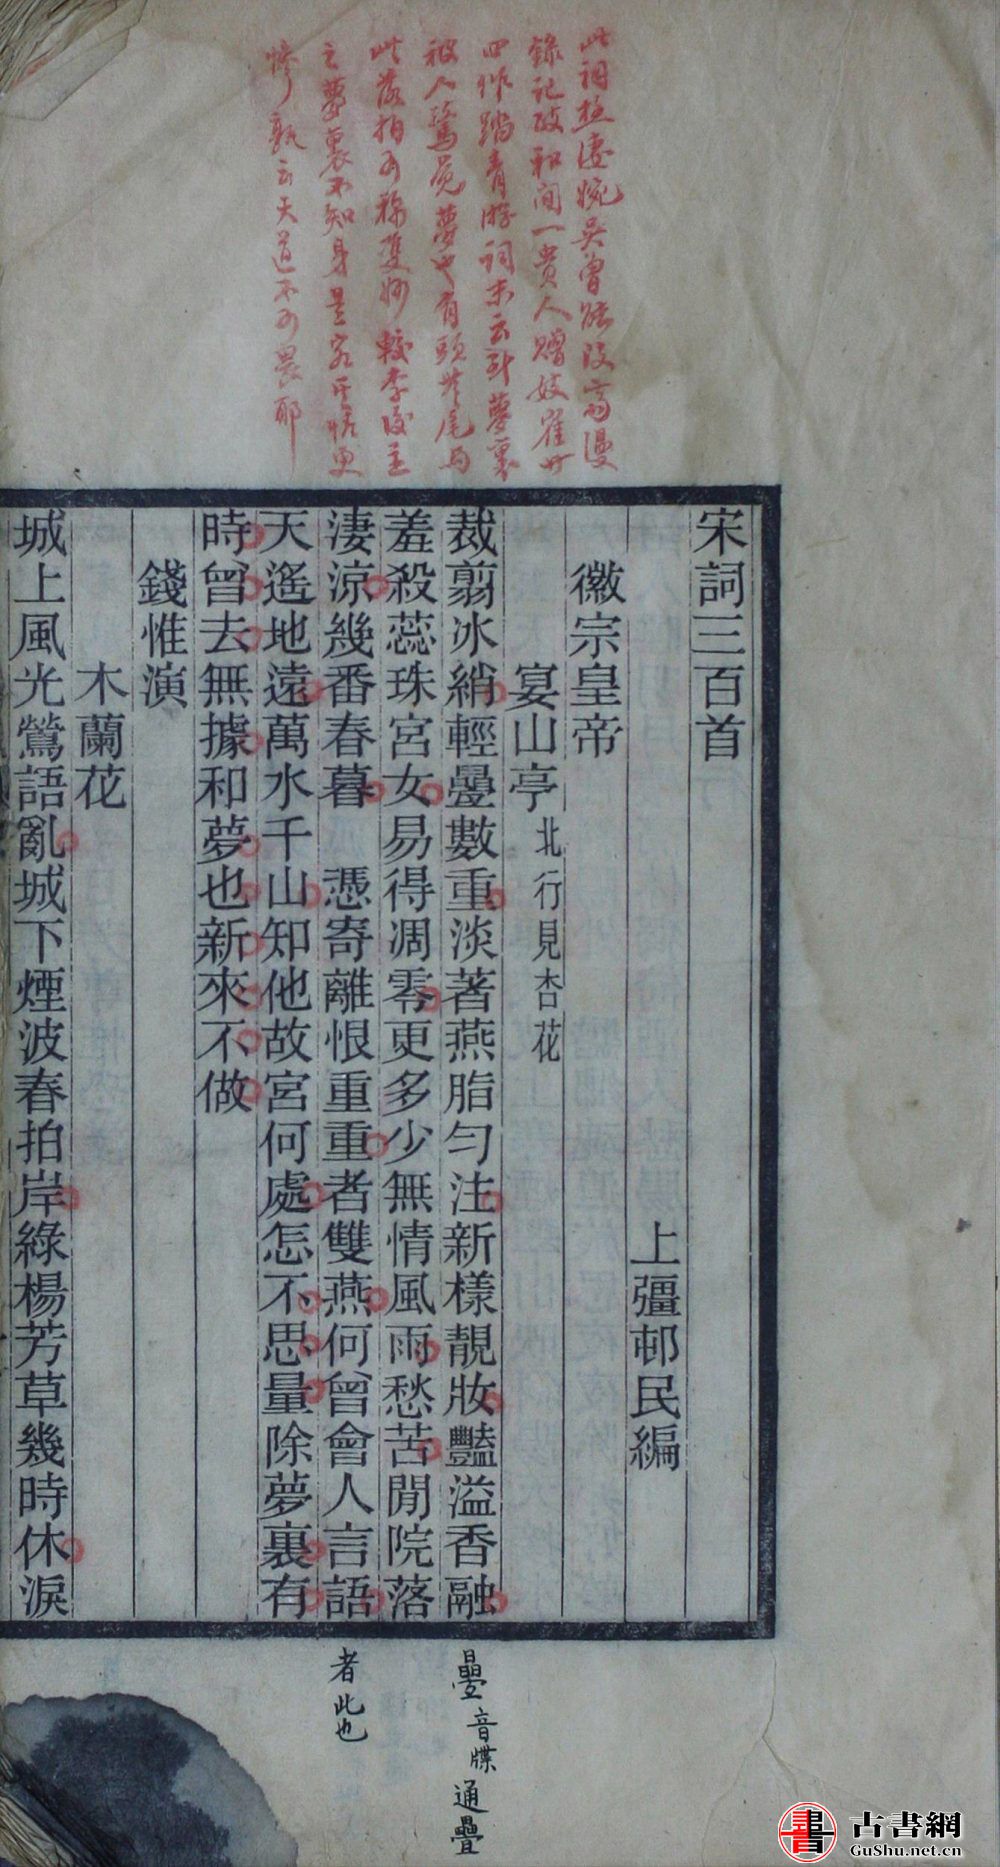 此詞極淒婉吳曾能改齋漫
錄記政和間一貴人贈妓崔廿
四作踏青游詞末云到夢裏
被人驚覺夢也有頭無尾與
此落拍可稱雙妙較李後主
之夢裏不知身是客其情更
慘孰云天道不可畏耶
宋詞三百首
上彊邨民編
徽宗皇帝
宴山亭北行見杏花
裁翦冰綃輕曡數重淡著燕脂勻注新樣靚妝豔溢香融
羞殺蕊珠宮女易得凋零更多少無情風雨愁苦閒院落
淒涼幾番春暮 憑寄離恨重重者雙燕何曾會人言語
天遙地遠萬水千山知他故宮何處怎不思量除夢裏有
時曾去無據和夢也新來不做
錢惟演
木蘭花
城上風光鶯語亂城下煙波春拍岸綠楊芳草幾時休淚
曡音牒通疊
者此也
古書網
GuShu.net.cn